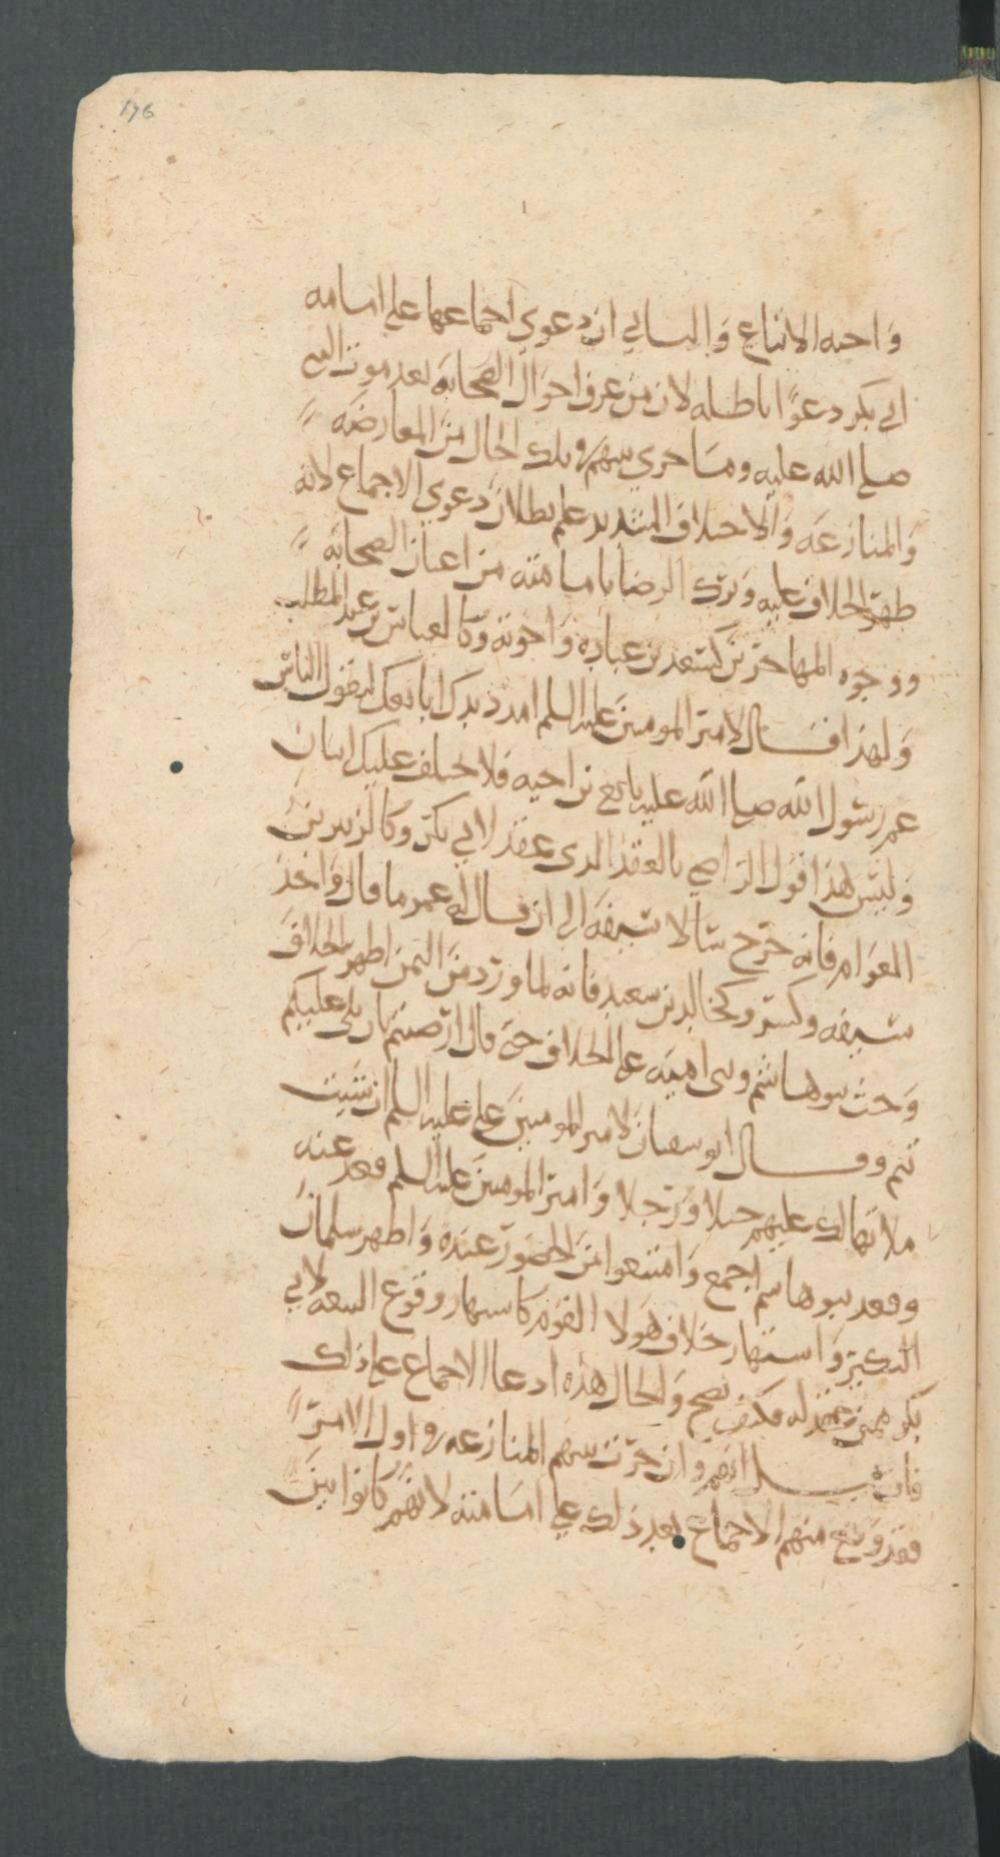 176
واحبه الاتباع والساىي ان دعوى احماعها على امامه
ابي بكر دعوًا باطله لان من عرف احوال الصحابه بعد موت النبي
صلى الله عليه وما حرى بينهم في تلك الحال من المعارضه
والمنازعه والاختلاف الشديد علم بطلان دعوى الاجماع لانه
ظهر الخلاف عليه وترك الرضا بامامته من اعيان الصحابه
ووجوه المهاحرين كسعد بن عباده واخوته وكالعباس بن عبد المطلب
ولهذا قال لامير المومنين عليه السلم امدد يدك ابايعك ليقول الناس
عم رسول الله صلى الله عليه بايع بن اخيه فلا يختلف عليك اثنان
وليس هذا قول الراضي بالعقد الذي عقد لابي بكر وكالزبير بن
العوام فانه خرج شالا سيفه الى ان قال له عمر ما قال واخذ
سيفه وكسر وكخالد بن سعيد فانه لما ورد من اليمن اظهر الخلاف
وحث بنوهاشم وبني اميه على الخلاف حتى قال ارضيتم ان يلي عليكم
تيم وقال ابو سفيان لامير المومنين علي عليه السلم ان شيت
ملاتها لك عليهم خيلا ورجلا وامير المومنين عليه السلم قعد عنه
وقعد بنوهاشم اجمع وامتنعوا من الحضور عنده واظهر سلمان
النكير واشتهار خلاف هولا القوم كاشتهار وقوع البيعه لابي
بكر ممن عقد له فكيف يصح والحال هذه ادعا الاجماع على ذلك
فان قيل انهم وان جرت بينهم المنازعه في اول الامر
فقد وقع منهم الاجماع بعد ذلك على امامته لانهم كانوا بين